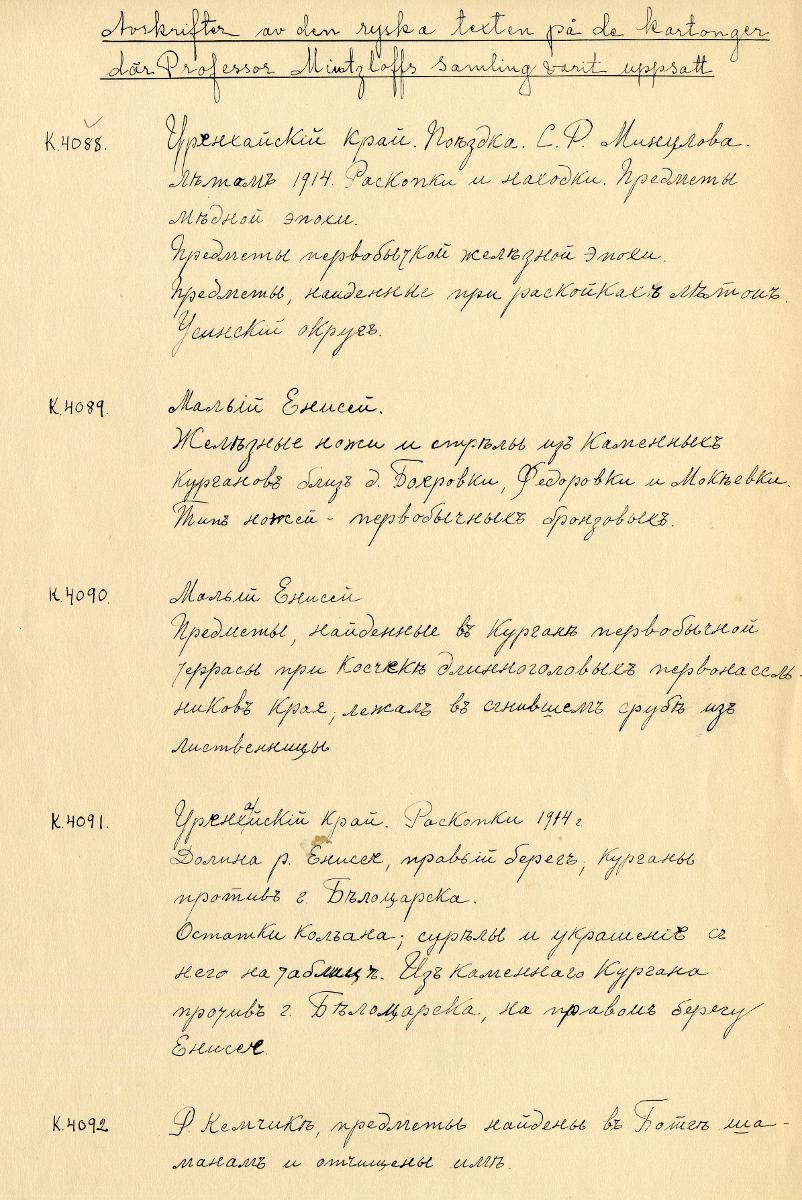 Avskrifter av den ryska texten på de kartonger
där Professor Mintzloffs samling varit uppsatt
K.4088. Уренхайскій край. Поѣздка. С. Р. Минцлова.
лѣтомъ 1914. Раскопки и находки. Предметы
мѣдной эпохи.
Предметы первобычкой желѣзной эпохи.
Предметы, найденные при раскойкахъ лѣтомъ.
Усинскій округъ.
K.4089. Малый Енисей.
Желѣзные ножи и стрѣлы изъ Каменныхъ
Кургановъ близъ д. Бояровки, Федоровки и Мокѣевки.
Типъ ножей - первобычныхъ бронзовыхъ.
K.4090. Малый Енисей
Предметы, найденные въ Курганѣ первобычной
террасы при Косчекѣ длинноголовыхъ первонассль-
никовъ Края; лежалъ въ сгнившемъ срубѣ изъ
лиственницы
K.4091. Уренхайскій край. Раскопки 1914 г
Долина р. Енисее, правый берегъ, Курганы
противъ г. Бѣлоцарска.
Остатки колъана; сурѣлы и украшеніе съ
него на таблицъ. Изъ Каменнаго Кургана
прочивъ г. Бѣлоцарска, на правомъ берегу
Енисее.
K.4092 Р. Кемчикѣ, предметы найдены въ Ботегѣ ша-
манамъ и отчищены имъ.